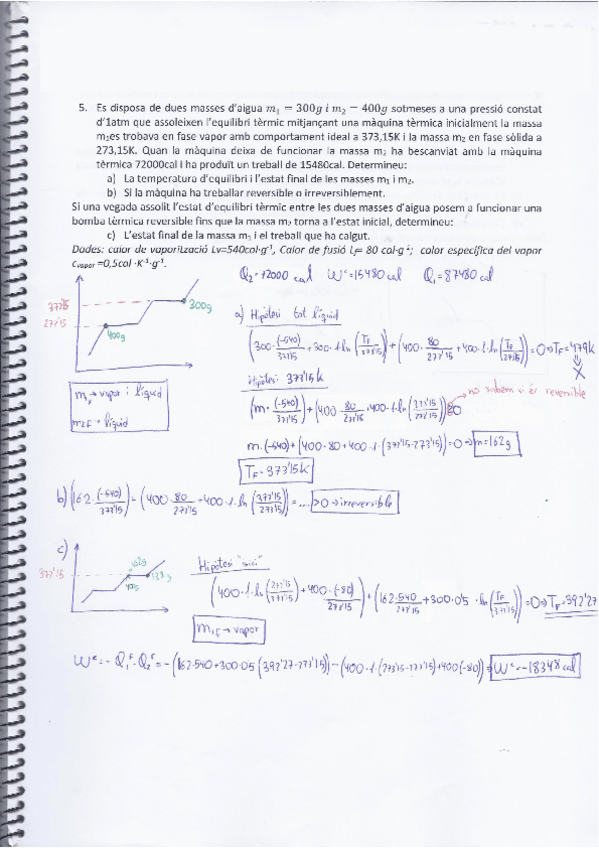 5. Es disposa de dues masses d'aigua m₁ = 300g i m₂ = 400g sotmeses a una pressió constat
d'1atm que assoleixen l'equilibri tèrmic mitjançant una màquina tèrmica inicialment la massa
m₁es trobava en fase vapor amb comportament ideal a 373,15K i la massa m₂ en fase sòlida a
273,15K. Quan la màquina deixa de funcionar la massa m₂ ha bescanviat amb la màquina
tèrmica 72000cal i ha produït un treball de 15480cal. Determineu:
a) La temperatura d'equilibri i l'estat final de les masses m₁ i m₂.
b) Si la màquina ha treballar reversible o irreversiblement.
Si una vegada assolit l'estat d'equilibri tèrmic entre les dues masses d'aigua posem a funcionar una
bomba tèrmica reversible fins que la massa m₂ torna a l'estat inicial, determineu:
c) L'estat final de la massa m₁ i el treball que ha calgut.
Dades: calor de vaporització Lv=540cal·g⁻¹, Calor de fusió Lf= 80 cal·g⁻¹; calor específica del vapor
cvapor =0,5cal ·K⁻¹·g⁻¹.
Q₂=72000 cal Wᵉ=15480 cal Q₁=87480 cal
373'15
273'15
300g
400g
a) Hipòtesi tot líquid
(300·(-540)/373'15 + 300·1·ln(TF/373'15)) + (400·80/273'15 + 400·1·ln(TF/273'15)) = 0 ⇒ TF = 479K
X
Hipòtesi 373'15K
no sabem si és reversible
(m·(-540)/373'15) + (400·80/273'15 + 400·1·ln(373'15/273'15)) = 0
m·(-540)+(400·80+400·1·(373'15-273'15))=0 ⇒ m=162g
TF=373'15K
m₁F → vapor i líquid
m₂F → líquid
b) (162·(-540)/373'15) + (400·80/273'15 + 400·1·ln(373'15/273'15)) = .... >0 ⇒ irreversible
c)
373'15
162g
400g
138g
Hipòtesi "inici"
(400·1·ln(273'15/373'15) + 400·(-80)/273'15) + (162·540/373'15 + 300·0'5·ln(TF/373'15)) = 0 ⇒ TF=392'27
m₁F → vapor
Wᵉ=-Q₁ᶠ-Q₂ᶠ=-(162·540+300·0'5(392'27-373'15))-(400·1·(273'15-373'15)+400(-80))= Wᵉ=-18348 cal